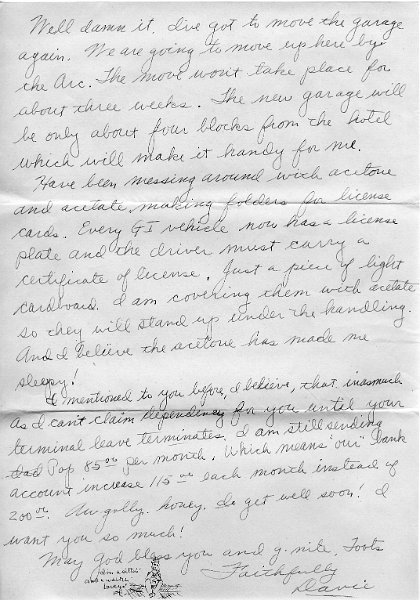 Well damn it. I've got to move the garage
again. We are going to move up here by
the Arc. The move won't take place for
about three weeks. The new garage will
be only about four blocks from the hotel
which will make it handy for me.
Have been messing around with acetone
and acetate, making folders for license
cards. Every GI vehicle now has a license
plate and the driver must carry a
certificate of license. Just a piece of light
cardboard. I am covering them with acetate
so they will stand up under the handling.
And I believe the acetone has made me
sleepy!
I mentioned to you before, I believe, that inasmuch
As I can't claim dependency for you until your
terminal leave terminates, I am still sending
Pop 85.00 per month. Which means "our" bank
account increase 115.00 each month instead of
200.00. Aw golly, honey. Do get well soon! I
want you so much!
May God bless you and g. nite, Toots
Faithfully
Davie